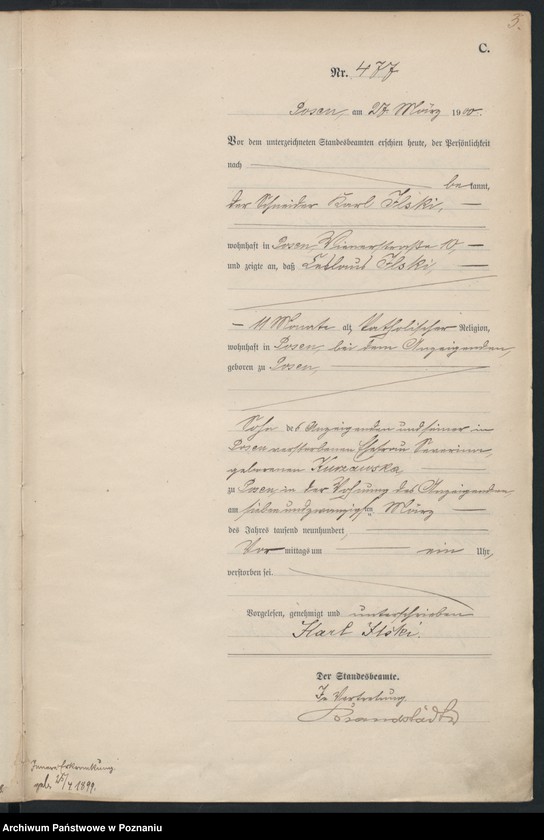 3.
C.
Nr. 477
Posen, am 27 März 1900.
Vor dem unterzeichneten Standesbeamten erschien heute, der Persönlichkeit
nach
bekannt,
der Schneider Karl Ilski,
wohnhaft in Posen, Wienerstraße 10,
und zeigte an, daß Ceslaus Ilski,
11 Monate alt, katholischer Religion,
wohnhaft in Posen, bei dem Anzeigenden,
geboren zu Posen,
Sohn des Anzeigenden und seiner in
Posen verstorbenen Ehefrau Severina,
geborenen Kurzawska,
zu Posen, in der Wohnung des Anzeigenden
am siebenundzwanzigsten März
des Jahres tausend neunhundert,
Vor mittags um ein Uhr,
verstorben sei.
Vorgelesen, genehmigt und unterschrieben
Karl Ilski.
Der Standesbeamte.
In Vertretung
Brandstädter
geb. 25/4.1899.
Archiwum Państwowe w Poznaniu